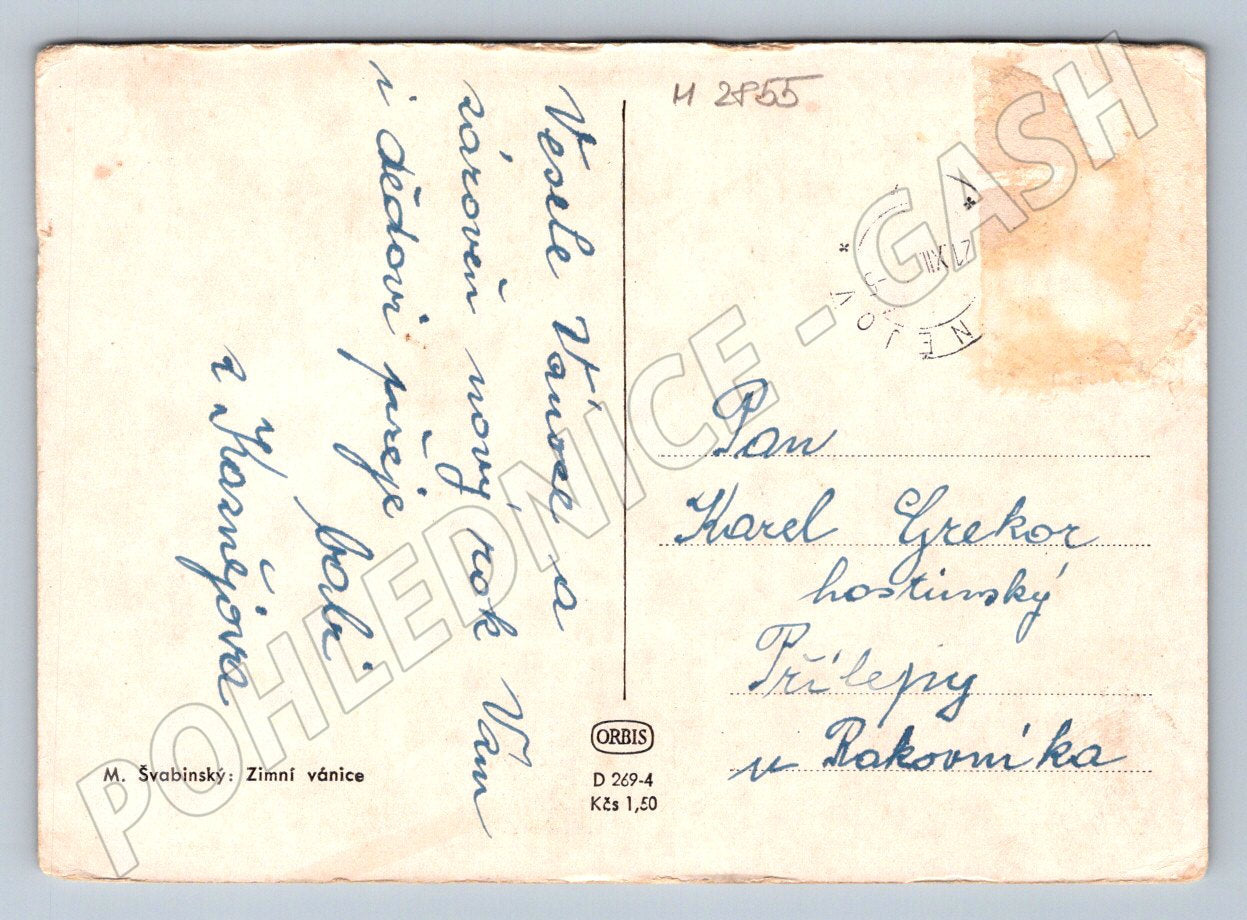 Veselé Vánoce a
zároveň nový rok Vám
i dědovi přeje
babi
z Kozňějova
M 2855
NEJOV
Pan
Karel Grekor
hostinský
Přílepy
u Rakovníka
M. Švabinský: Zimní vánice
ORBIS
D 269-4
Kčs 1,50
POHLEDNICE - GASH